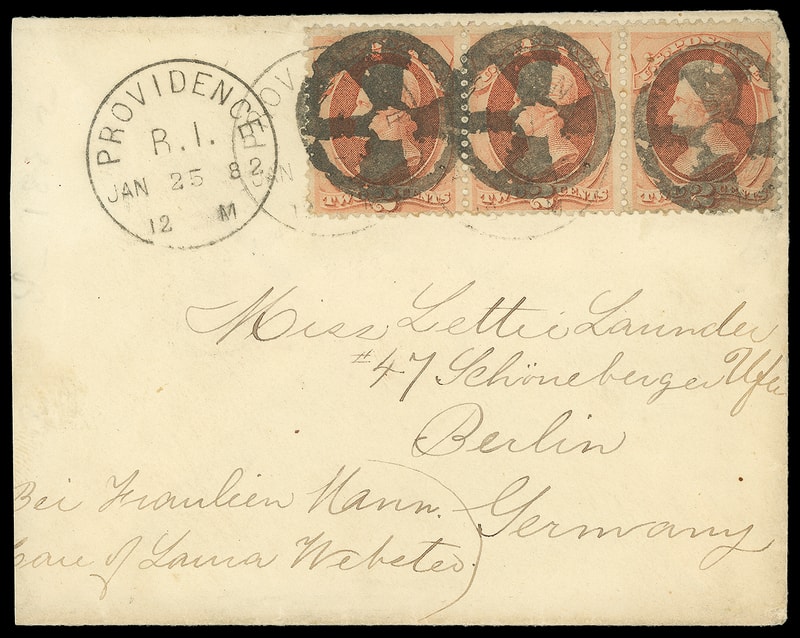 PROVIDENCE
R.I.
JAN 25 82
12 M
PROVI
JAN
U.S. POSTAGE
TWO 2 CENTS
TWO 2 CENTS
TWO 2 CENTS
Miss Lettie Launder
#47 Schöneberger Ufer
Berlin
Germany
Bei Fraulien Mann.
Care of Laura Webster.